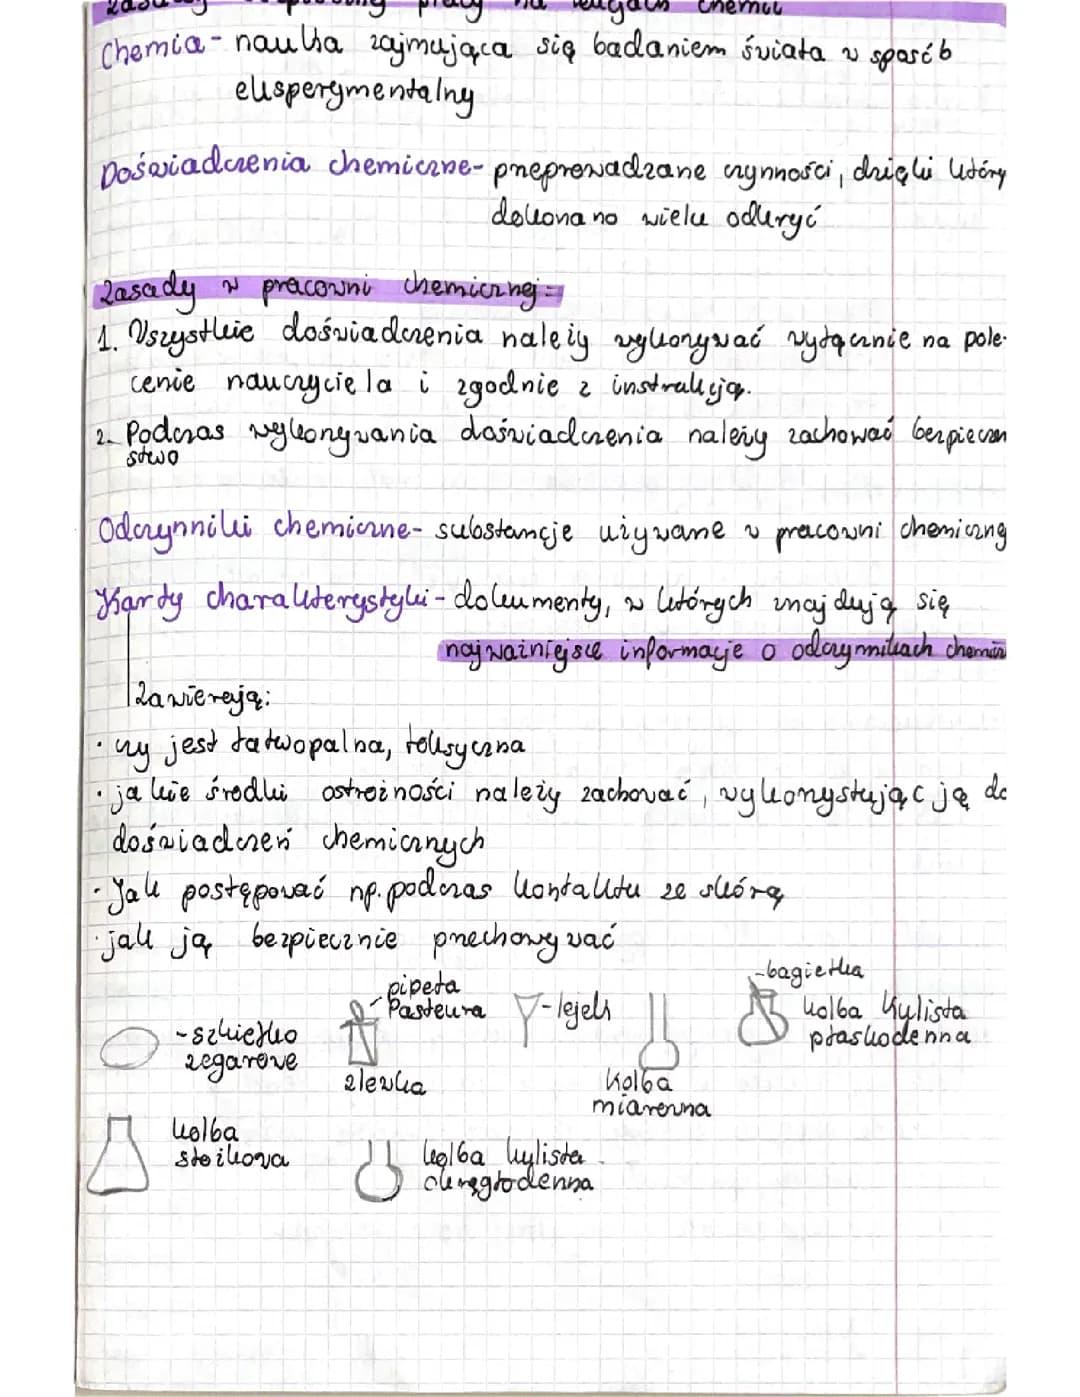 pracy na chemii
Chemia - nauka zajmująca się badaniem świata w sposób
eksperymentalny
Doświadczenia chemiczne - przeprowadzane czynności, dzięki który
dokonano wielu odkryć
Zasady w pracowni chemicznej =
1. Wszystkie doświadczenia należy wykonywać wyłącznie na pole-
cenie nauczyciela i zgodnie z instrukcją.
2. Podczas wykonywania doświadczenia należy zachować bezpieczeń
stwo
Odczynniki chemiczne - substancje używane w pracowni chemiczne
Karty charakterystyki - dokumenty, w których znajdują się
najważniejsze informacje o odczynnikach chemicz
Zawierają:
· czy jest łatwopalna, toksyczna
· jakie środki ostrożności należy zachować, wykonystując ją do
doświadczeń chemicznych
· Jak postępować np. podczas kontaktu ze skórą
· jak ją bezpiecznie przechowywać
- bagietka
pipeta
- Pasteura
- lejek
kolba kulista
płaskodenna
- szkiełko
zegarowe
zlewka
Kolba
miarowa
kolba
stożkowa
kolba kulista
okrągłodenna